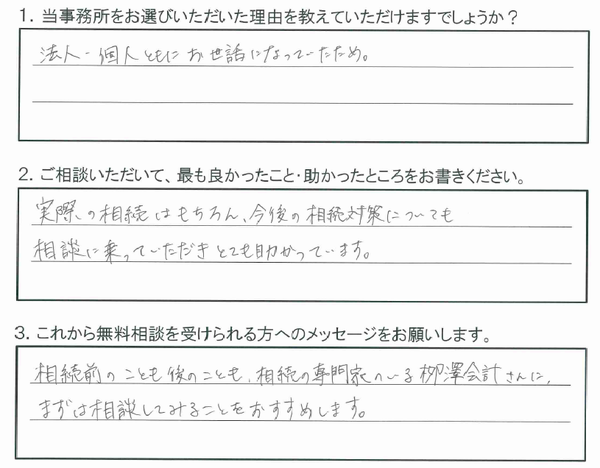 1. 当事務所をお選びいただいた理由を教えていただけますでしょうか？
法人・個人ともにお世話になっていたため。
2. ご相談いただいて、最も良かったこと・助かったところをお書きください。
実際の相続はもちろん、今後の相続対策についても
相談に乗っていただきとても助かっています。
3. これから無料相談を受けられる方へのメッセージをお願いします。
相続前のことも後のことも、相続の専門家のいる柳澤会計さんに、
まずは相談してみることをおすすめします。